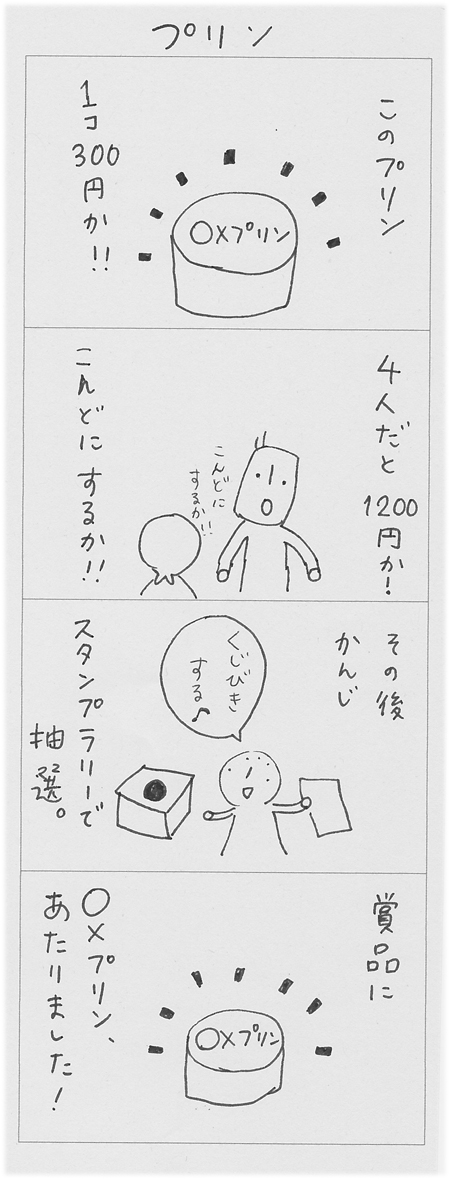 プリン
このプリン
〇×プリン
1コ300円か!!
4人だと
1200円か!
こんどに
するか!!
こんどにするか!!
その後
かんじ
くじびき
する♪
スタンプラリーで
抽選。
賞品に
〇×プリン
〇×プリン、
あたりました!